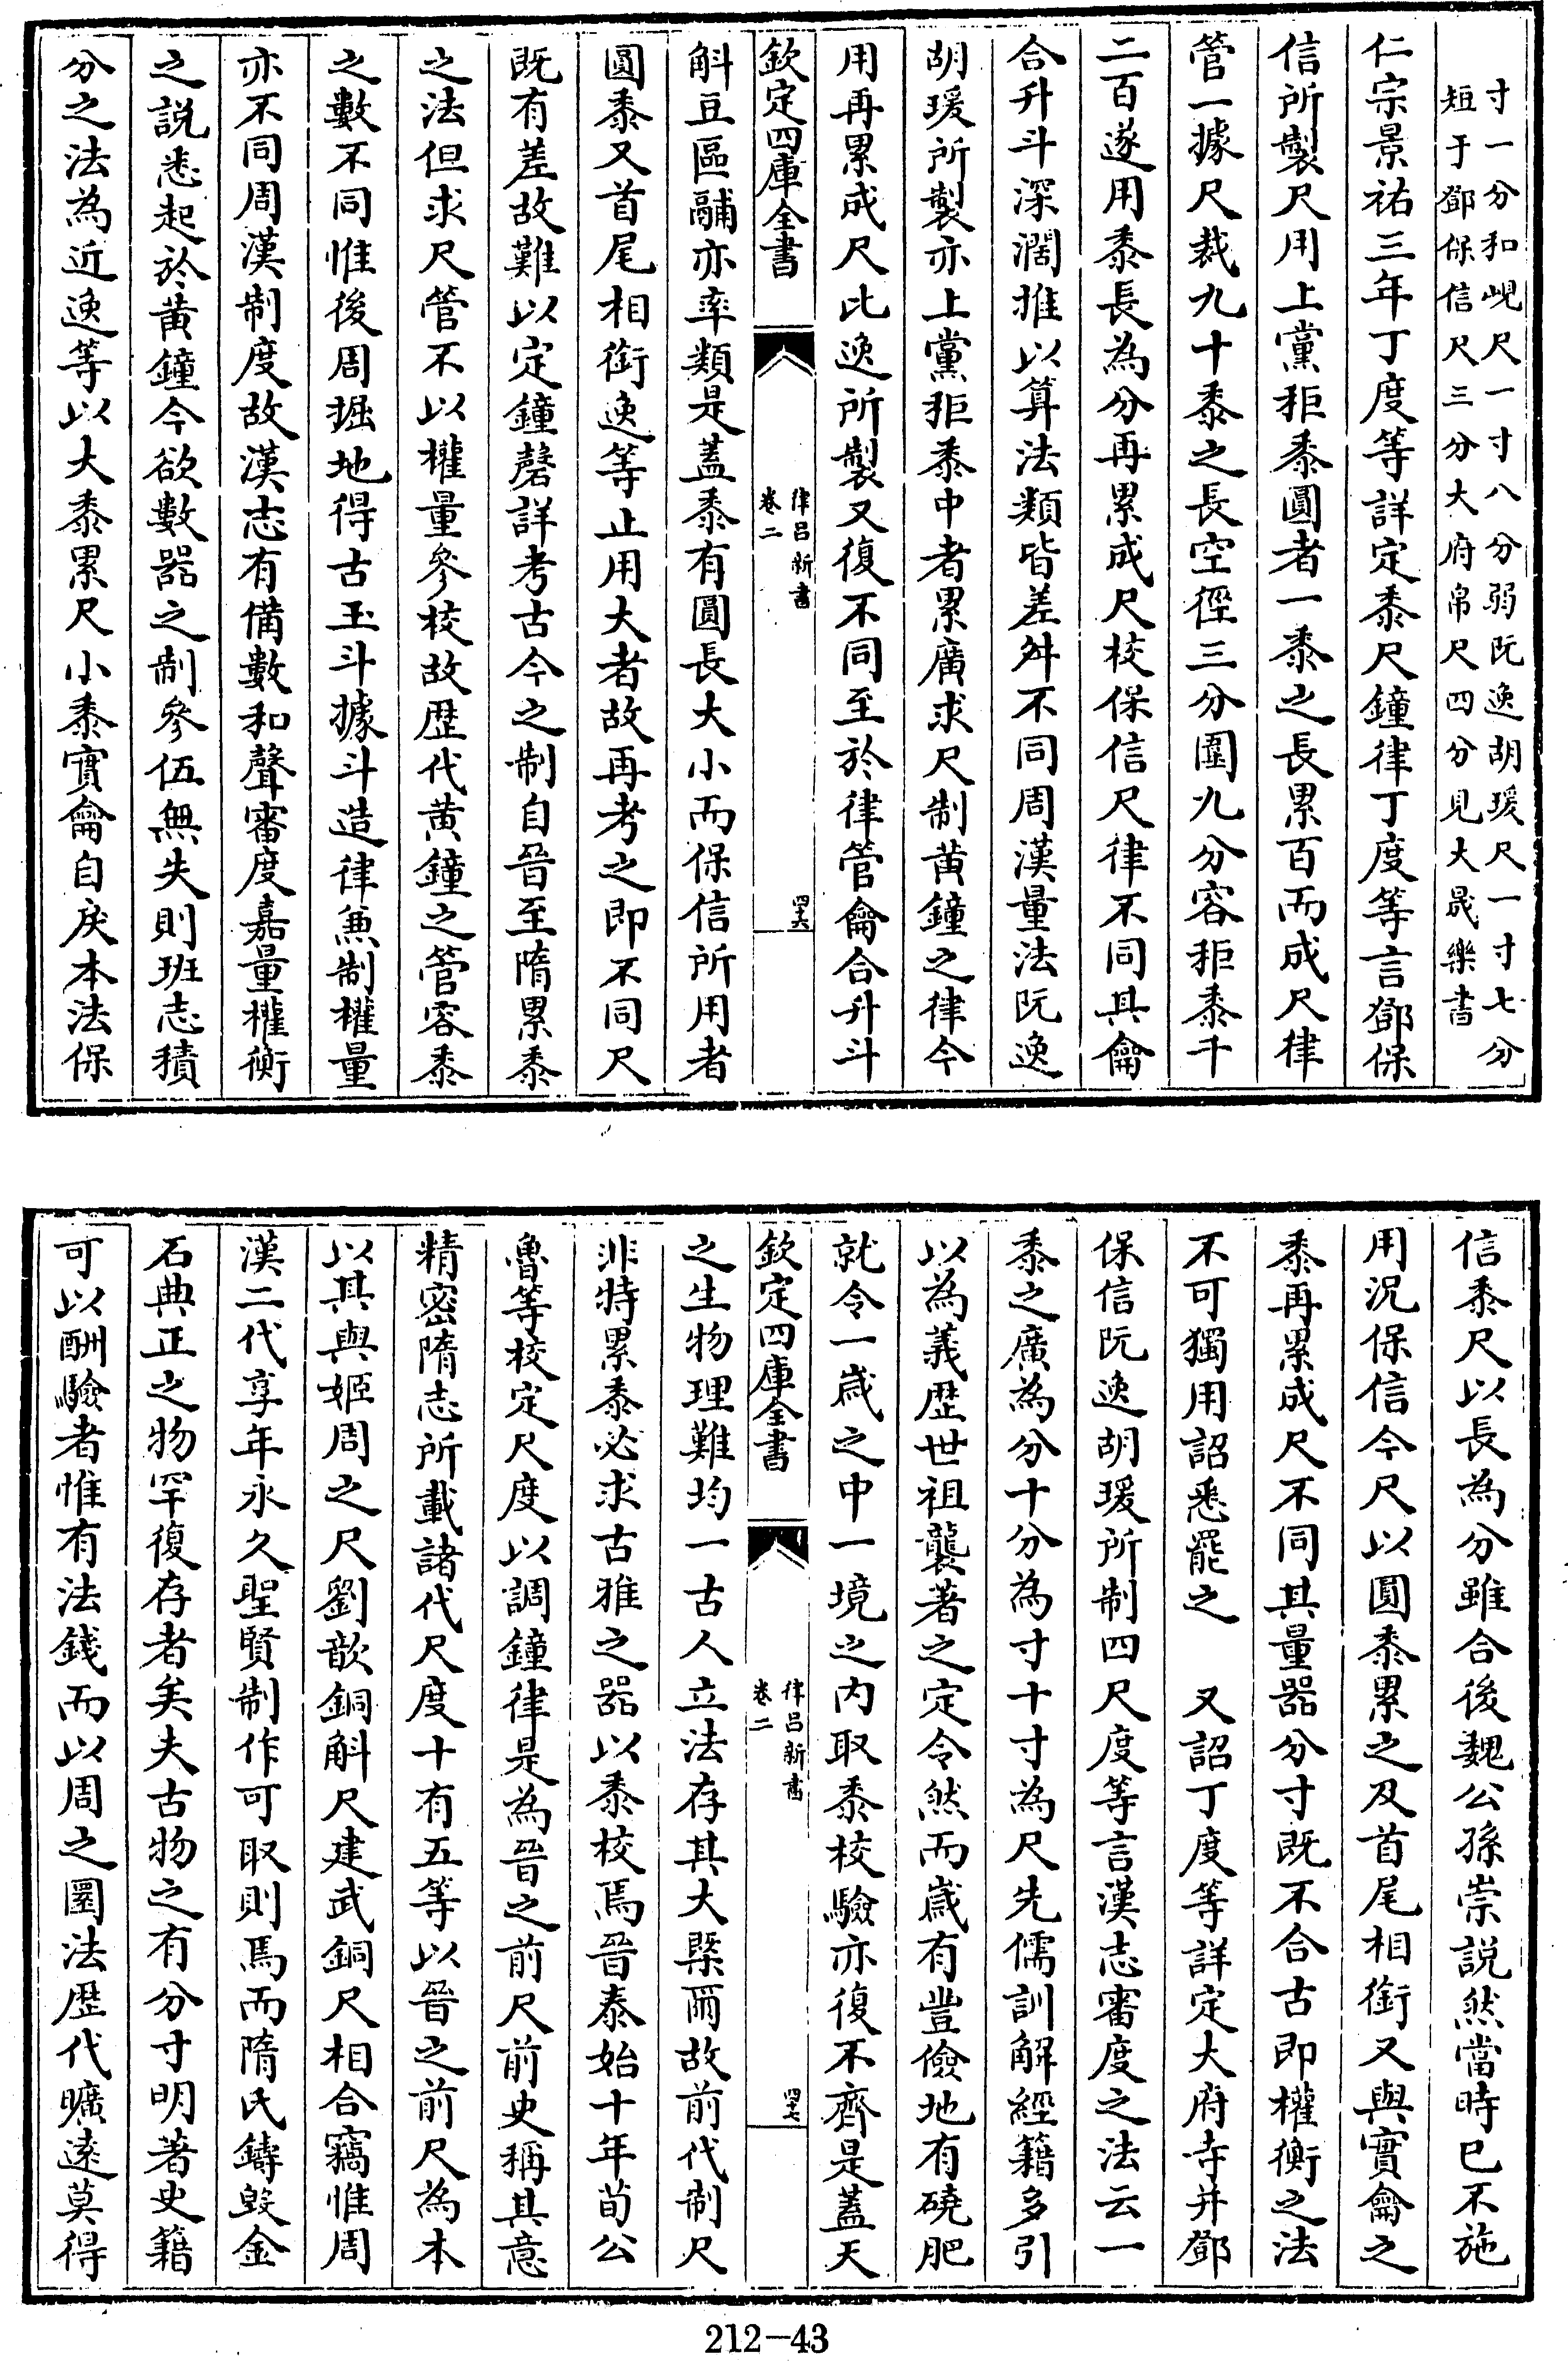 寸一分和峴尺一寸八分弱阮逸胡瑗尺一寸七分
短于鄧保信尺三分大府帛尺四分見大晟樂書
仁宗景祐三年丁度等詳定黍尺鐘律丁度等言鄧保
信所製尺用上黨秬黍圓者一黍之長累百而成尺律
管一據尺裁九十黍之長空徑三分圍九分容秬黍千
二百遂用黍長為分再累成尺校保信尺律不同其龠
合升斗深濶推以算法類皆差舛不同周漢量法阮逸
胡瑗所製亦上黨秬黍中者累廣求尺制黄鐘之律今
用再累成尺比逸所製又復不同至於律管龠合升斗
欽定四庫全書
律吕新書
卷二
四十六
斛豆區鬴亦率類是蓋黍有圓長大小而保信所用者
圓黍又首尾相銜逸等止用大者故再考之即不同尺
既有差故難以定鐘磬詳考古今之制自晉至隋累黍
之法但求尺管不以權量參校故歴代黄鐘之管容黍
之數不同惟後周掘地得古玉斗據斗造律兼制權量
亦不同周漢制度故漢志有備數和聲審度嘉量權衡
之説悉起於黄鐘今欲數器之制參伍無失則班志積
分之法為近逸等以大黍累尺小黍實龠自戾本法保
信黍尺以長為分雖合後魏公孫崇説然當時已不施
用況保信今尺以圓黍累之及首尾相銜又與實龠之
黍再累成尺不同其量器分寸既不合古即權衡之法
不可獨用詔悉罷之 又詔丁度等詳定大府寺并鄧
保信阮逸胡瑗所制四尺度等言漢志審度之法云一
黍之廣為分十分為寸十寸為尺先儒訓解經籍多引
以為義歴世祖襲著之定令然而嵗有豐儉地有磽肥
就令一嵗之中一境之内取黍校驗亦復不齊是蓋天
欽定四庫全書
律吕新書
卷二
四十七
之生物理難均一古人立法存其大槩爾故前代制尺
非特累黍必求古雅之器以黍校焉晉泰始十年荀公
魯等校定尺度以調鐘律是為晉之前尺前史稱其意
精密隋志所載諸代尺度十有五等以晉之前尺為本
以其與姬周之尺劉歆銅斛尺建武銅尺相合竊惟周
漢二代享年永久聖賢制作可取則焉而隋氏鑄毁金
石典正之物罕復存者矣夫古物之有分寸明著史籍
可以酬驗者惟有法錢而以周之圜法歴代曠逺莫得
212-43